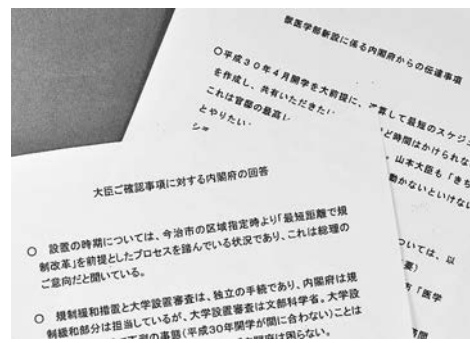 獣医学部新設に係る内閣府からの伝達事項
○平成３０年４月開学を大前提に、
算して最短のスケジュ
を作成し、共有いただきたい
これは官邸の最高レ
ど時間はかけられな
とやりたい
。山本大臣も「きち
動かないといけない
ついては、以
市「医学
大臣ご確認事項に対する内閣府の回答
○ 設置の時期については、今治市の区域指定時より「最短距離で規
制改革」を前提としたプロセスを踏んでいる状況であり、これは総理の
ご意向だと聞いている。
○ 規制緩和措置と大学設置審査は、独立の手続であり、内閣府は規
制緩和部分は担当しているが、大学設置審査は文部科学省。大学設
不測の事態（平成30年開学が間に合わない）ことは